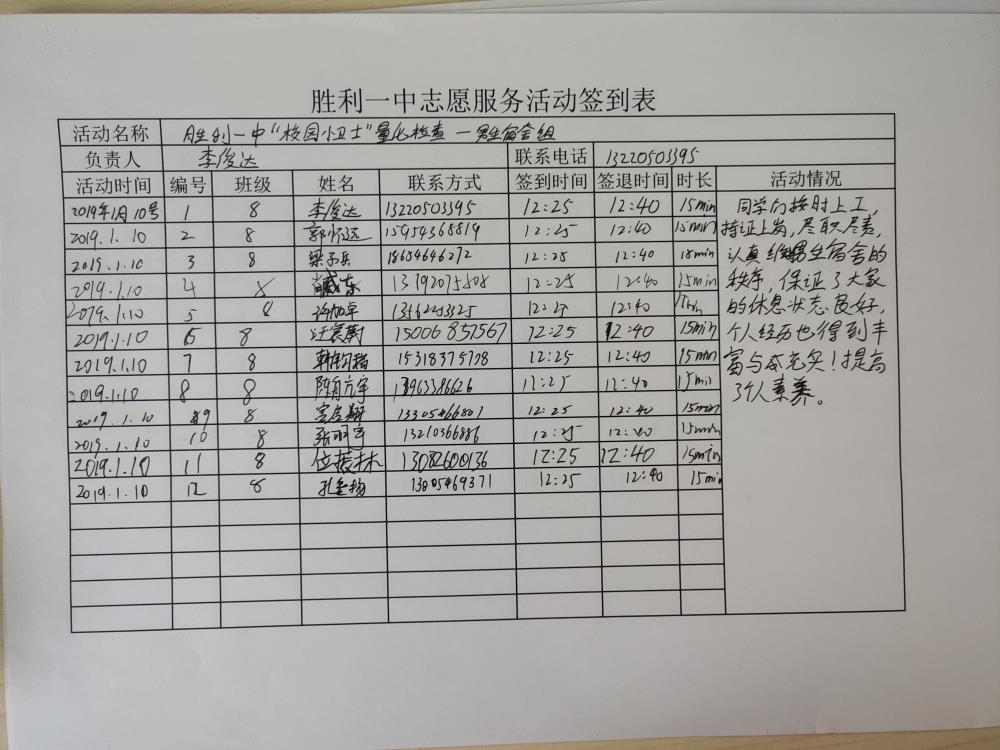 胜利一中志愿服务活动签到表
活动名称 胜利一中“校园小卫士”量化检查 — 男生宿舍组
负责人 李俊达 联系电话 13220503395
活动时间 编号 班级 姓名 联系方式 签到时间 签退时间 时长 活动情况
2019年1月10号 1 8 李俊达 13220503395 12:25 12:40 15min
2019.1.10 2 8 郭怀远 15954368819 12:25 12:40 15min
2019.1.10 3 8 梁子兵 18654646272 12:25 12:40 15min
2019.1.10 4 8 臧东 12:25 12:40 15min
2019.1.10 5 8 12:25 12:40
2019.1.10 6 8 15006857567 12:25 12:40 15min
2019.1.10 7 8 15318375778 12:25 12:40 15min
2019.1.10 8 8 13963386626 12:25 12:40 15min
2019.1.10 9 8 13305466801 12:25 12:40 15min
2019.1.10 10 8 张羽宇 13210366886 12:25 12:40 15min
2019.1.10 11 8 位振林 13082600136 12:25 12:40 15min
2019.1.10 12 8 13805469371 12:25 12:40 15min
同学们按时上工，
持证上岗，尽职尽责，
认真维护男生宿舍的
秩序，保证了大家
的休息状态良好，
个人经历也得到丰
富与充实！提高
了个人素养。